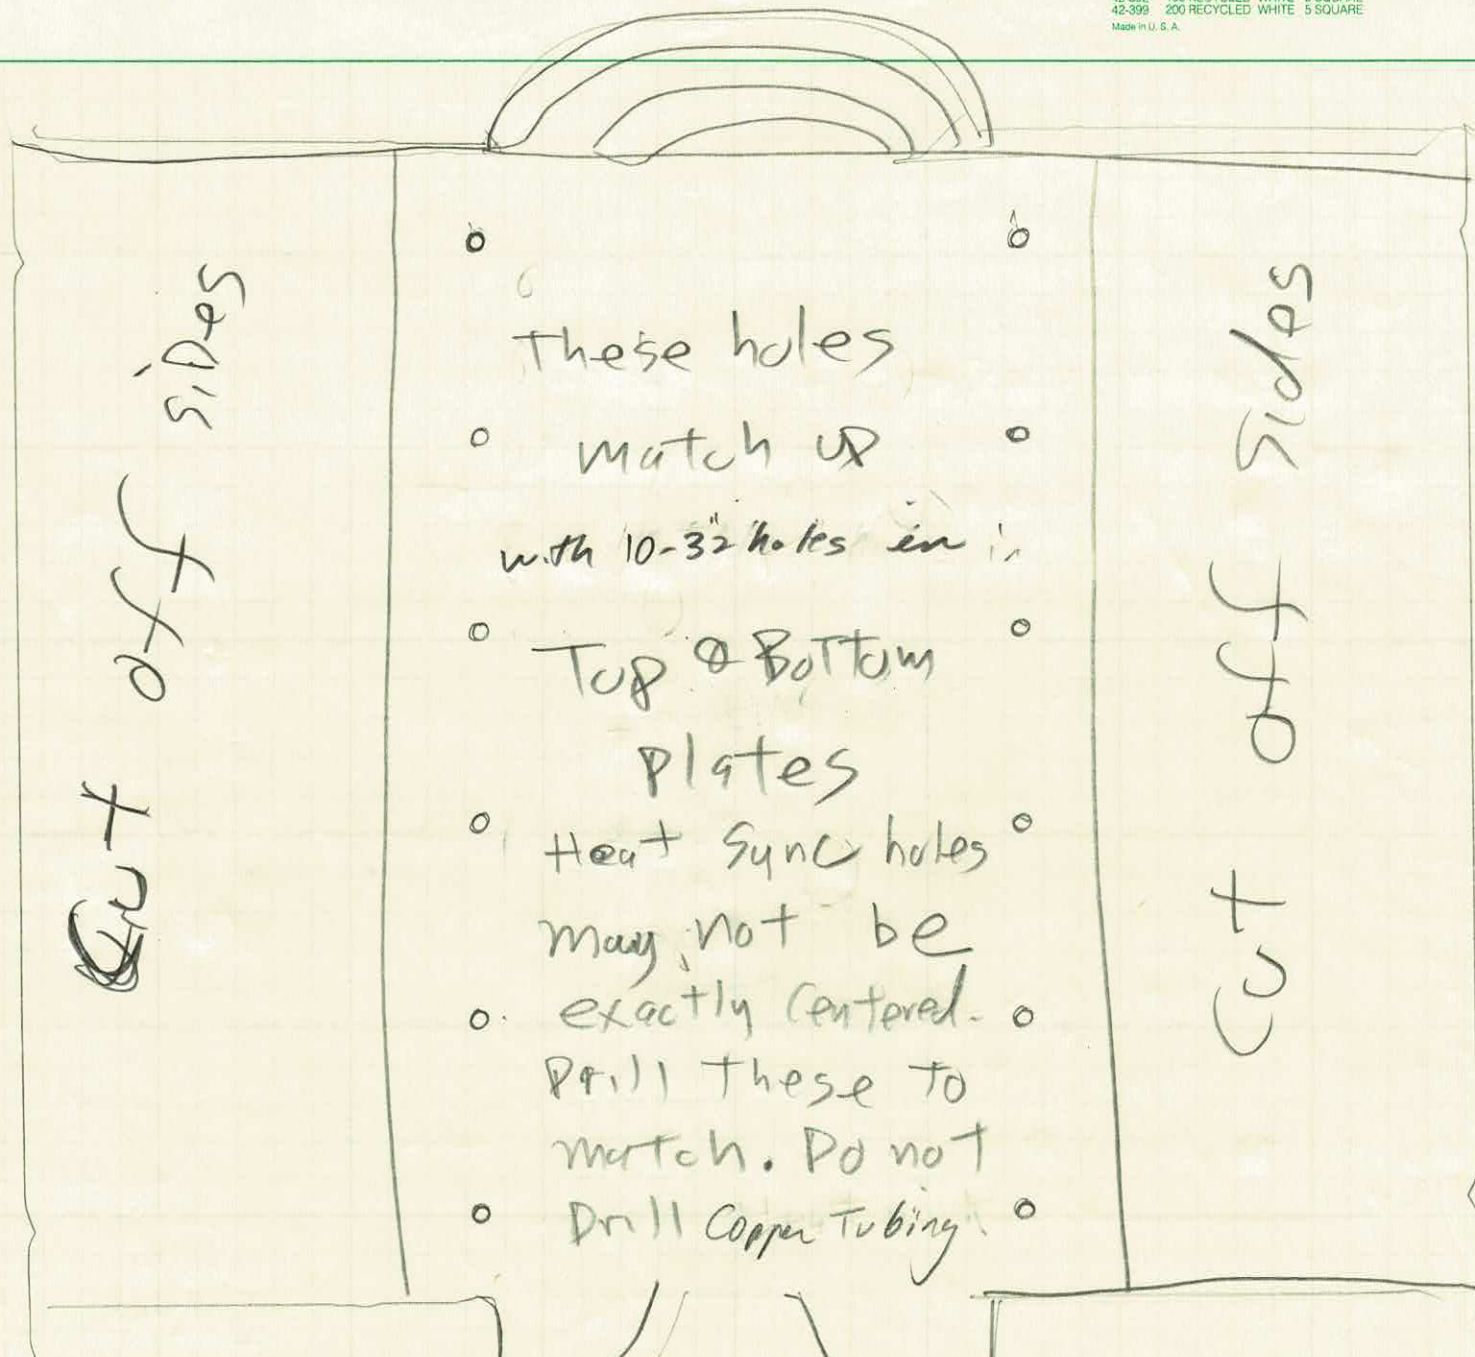 42-399 200 RECYCLED WHITE 5 SQUARE
Made in U. S. A.
Cut off SiDes
These holes
match up
with 10-32" holes in in
Top & Bottom
plates
Heat Sync holes
may not be
exactly Centered.
Drill These to
match. Do not
Drill Copper Tubing.
Cut off Sides